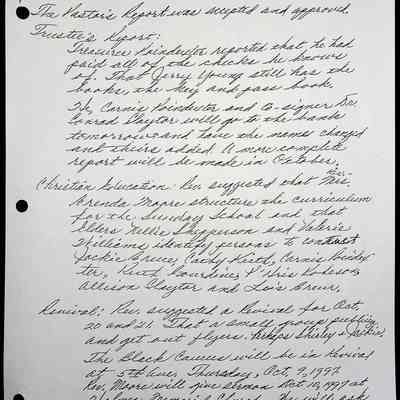 The Pastor's Report was accepted and approved.
Trustee's Report:
Treasurer Poindexter reported that he had
paid all of the checks he knows
of. That Jerry Young still has the
books, the key and pass book.
Tr. Cornis Poindexter and co-signer Tr.
Conrad Claytor will go to the bank
tomorrow and have the names changed
and theirs added. A more complete
report will be made in October.
Christian Education: Rev. suggested that Mrs.
Brenda Moore structure the curriculum
for the Sunday School and that
Elders Nellie Shepperson and Valerie
Williams identify persons to contact
Jackie Bruce, Cathy Keith, Cornis Poindex
ter, Ruth Gourdine, Kris Hodeson,
Allison Claytor and Lois Brown.
Revival: Rev. suggested a Revival for Oct.
20 and 21. That a small group publicize
and get out flyers. Perhaps Shirley & Jackie.
The Black Caucus will be in Revival
at 5th Ave. Thursday, Oct, 9, 1997
Rev. Moore will give sermon Oct 10, 1997 at
Memorial Church. He will ask